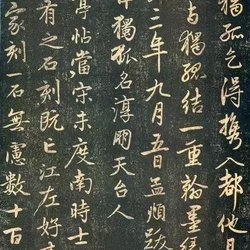 獨孤乞攜入都他日
與獨孤結一重翰墨緣
三年九月五日孟頫跋
中獨孤名淳朋天台人
亭帖當宋未度南時士
有之石刻既亡江左好事
家刻一石無慮數十百